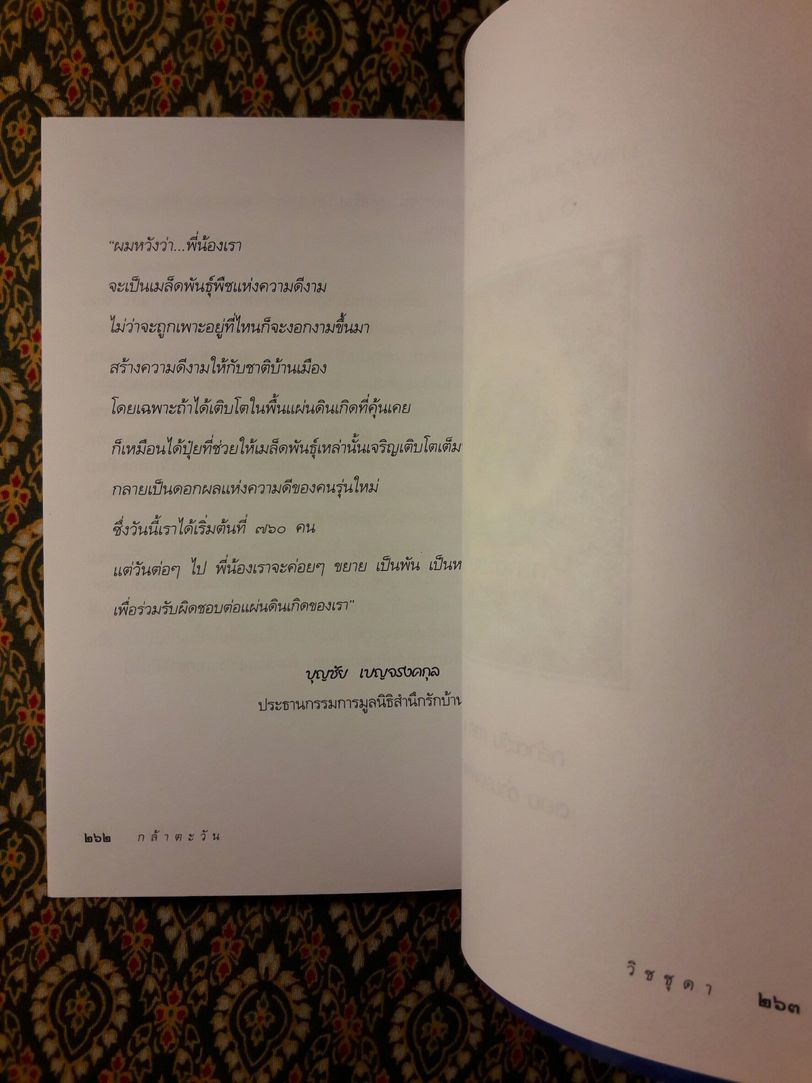 "ผมหวังว่า...พี่น้องเรา
จะเป็นเมล็ดพันธุ์พืชแห่งความดีงาม
ไม่ว่าจะถูกเพาะอยู่ที่ไหนก็จะงอกงามขึ้นมา
สร้างความดีงามให้กับชาติบ้านเมือง
โดยเฉพาะถ้าได้เติบโตในพื้นแผ่นดินเกิดที่คุ้นเคย
ก็เหมือนได้ปุ๋ยที่ช่วยให้เมล็ดพันธุ์เหล่านั้นเจริญเติบโตเต็ม
กลายเป็นดอกผลแห่งความดีของคนรุ่นใหม่
ซึ่งวันนี้เราได้เริ่มต้นที่ ๗๖๐ คน
แต่วันต่อๆ ไป พี่น้องเราจะค่อยๆ ขยาย เป็นพัน เป็น
เพื่อร่วมรับผิดชอบต่อแผ่นดินเกิดของเรา"
บุญชัย เบญจรงคกุล
ประธานกรรมการมูลนิธิสำนึกรักบ้าน
๒๖๒ กล้าตะวัน
วิชชุดา ๒๖๓